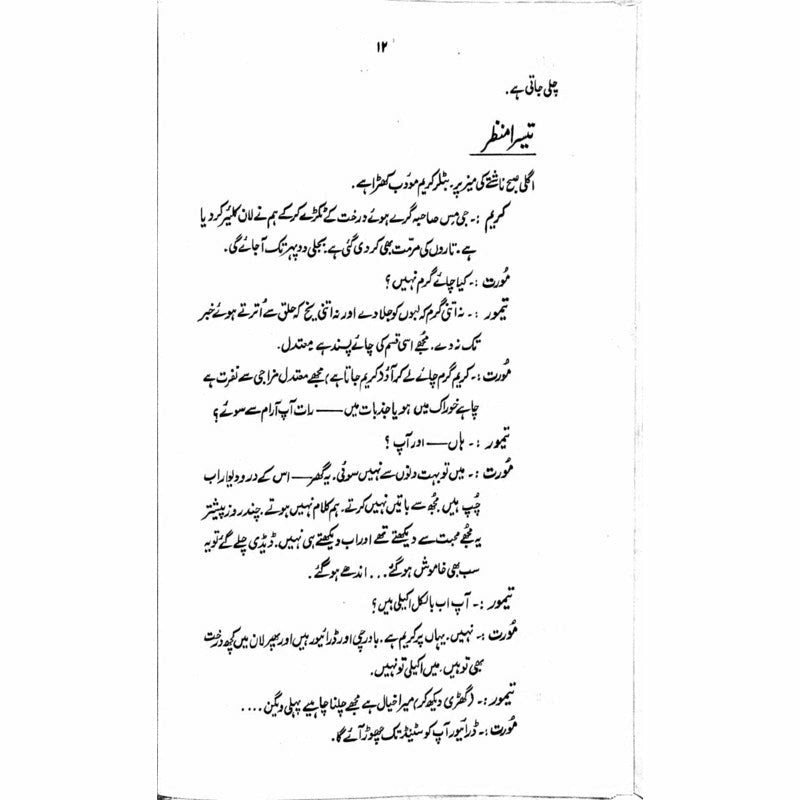 ۱۲
چلی جاتی ہے.
تیسرا منظر
اگلی صبح ناشتے کی میز پر. بٹلر کریم مودّب کھڑا ہے.
کریم :۔ جی مِس صاحبہ گرے ہوئے درخت کے ٹکڑے کرکے ہم نے لان کلیئر کر دیا
ہے. تاروں کی مرمّت بھی کر دی گئی ہے. بجلی دوپہر تک آجائے گی.
مُورت :۔ کیا چائے گرم نہیں؟
تیمور :۔ نہ اتنی گرم کہ لبوں کو جلا دے اور نہ اتنی یخ کہ حلق سے اُترتے ہوئے خبر
تک نہ دے. مجھے اسی قسم کی چائے پسند ہے یہ معتدل.
مُورت :۔ کریم گرم چائے لے کر آؤ (کریم جاتا ہے) مجھے معتدل مزاجی سے نفرت ہے
چاہے خوراک میں ہو یا جذبات میں —— رات آپ آرام سے سوئے؟
تیمور :۔ ہاں —— اور آپ ؟
مُورت :۔ میں تو بہت دِنوں سے نہیں سوئی. یہ گھر —— اس کے در و دیوار اب
چُپ ہیں. مجھ سے باتیں نہیں کرتے. ہم کلام نہیں ہوتے. چند روز پیشتر
یہ مجھے محبت سے دیکھتے تھے اور اب دیکھتے ہی نہیں. ڈیڈی چلے گئے تو یہ
سب بھی خاموش ہوگئے... اندھے ہوگئے.
تیمور :۔ آپ اب بالکل اکیلی ہیں؟
مُورت :۔ نہیں. یہاں پر کریم ہے. باورچی اور ڈرائیور ہیں اور پھر لان میں کچھ درخت
بھی تو ہیں. میں اکیلی تو نہیں.
تیمور :۔ (گھڑی دیکھ کر) میرا خیال ہے مجھے چلنا چاہیے پہلی ویگن ....
مُورت :۔ ڈرائیور آپ کو سٹینڈ تک چھوڑ آئے گا.